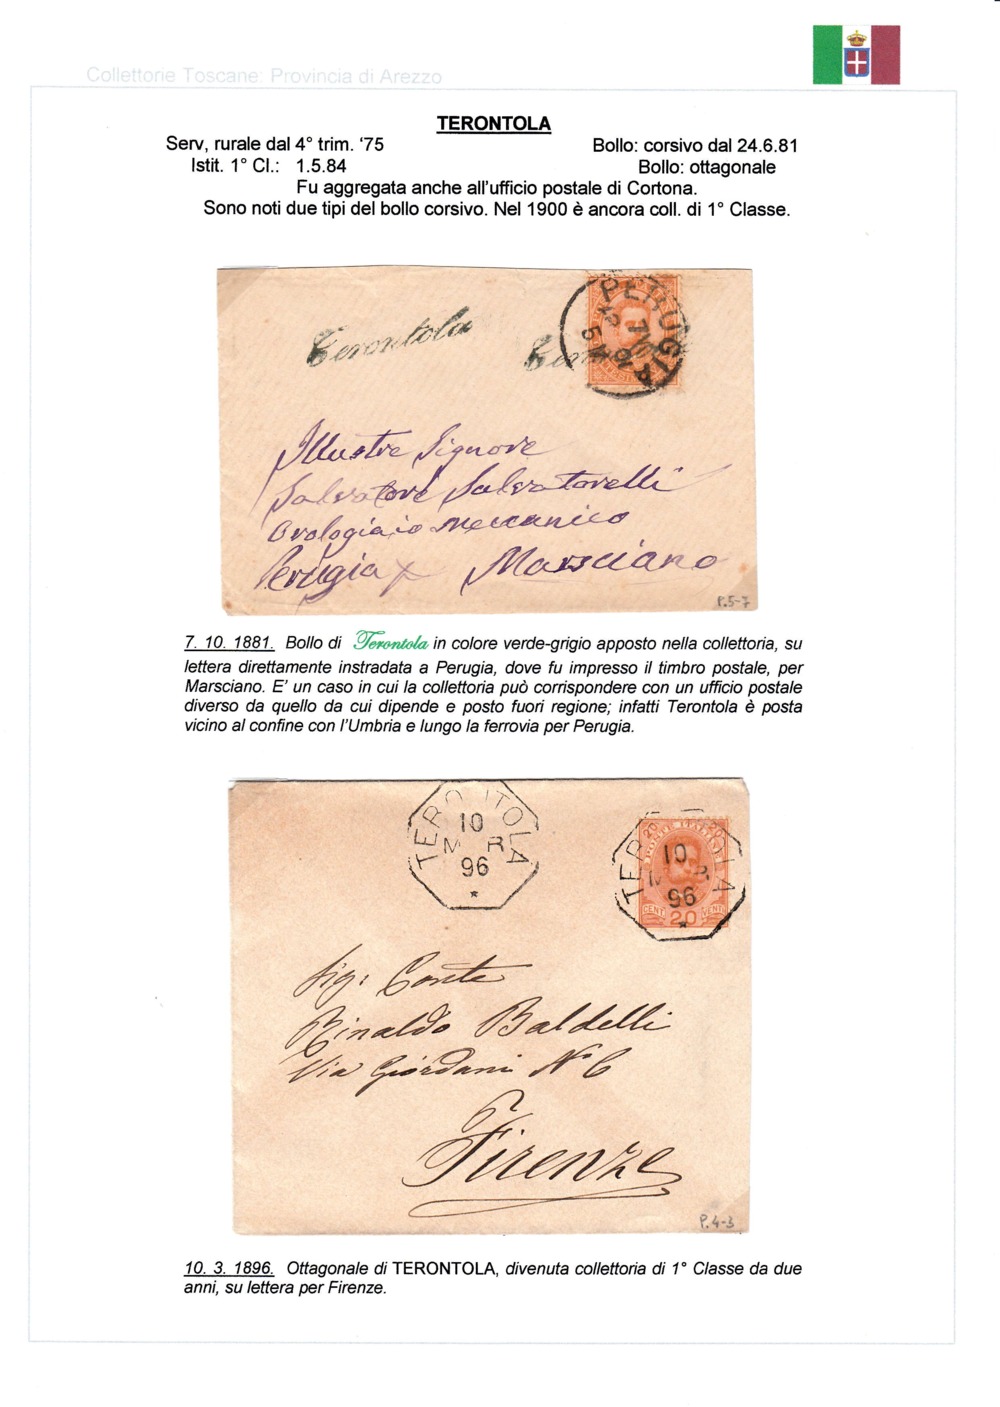 Collettorie Toscane: Provincia di Arezzo
TERONTOLA
Serv, rurale dal 4° trim. ‘75 Bollo: corsivo dal 24.6.81
Istit. 1° Cl.: 1.5.84 Bollo: ottagonale
Fu aggregata anche all’ufficio postale di Cortona.
Sono noti due tipi del bollo corsivo. Nel 1900 è ancora coll. di 1° Classe.
PERUGIA
Terontola
Illustre Signore
Salvatore Salvatorelli
Orologiaio Meccanico
Perugia x Marsciano
P.5-7
7. 10. 1881. Bollo di Terontola in colore verde-grigio apposto nella collettoria, su
lettera direttamente instradata a Perugia, dove fu impresso il timbro postale, per
Marsciano. E’ un caso in cui la collettoria può corrispondere con un ufficio postale
diverso da quello da cui dipende e posto fuori regione; infatti Terontola è posta
vicino al confine con l’Umbria e lungo la ferrovia per Perugia.
TERONTOLA
10
M R
96
*
20 20
POSTE ITALIANE
TERONTOLA
10
M R
96
*
CENT. 20 VENTI
Sig: Conte
Rinaldo Baldelli
Via Giordani N° 6
Firenze
P.4-3
10. 3. 1896. Ottagonale di TERONTOLA, divenuta collettoria di 1° Classe da due
anni, su lettera per Firenze.